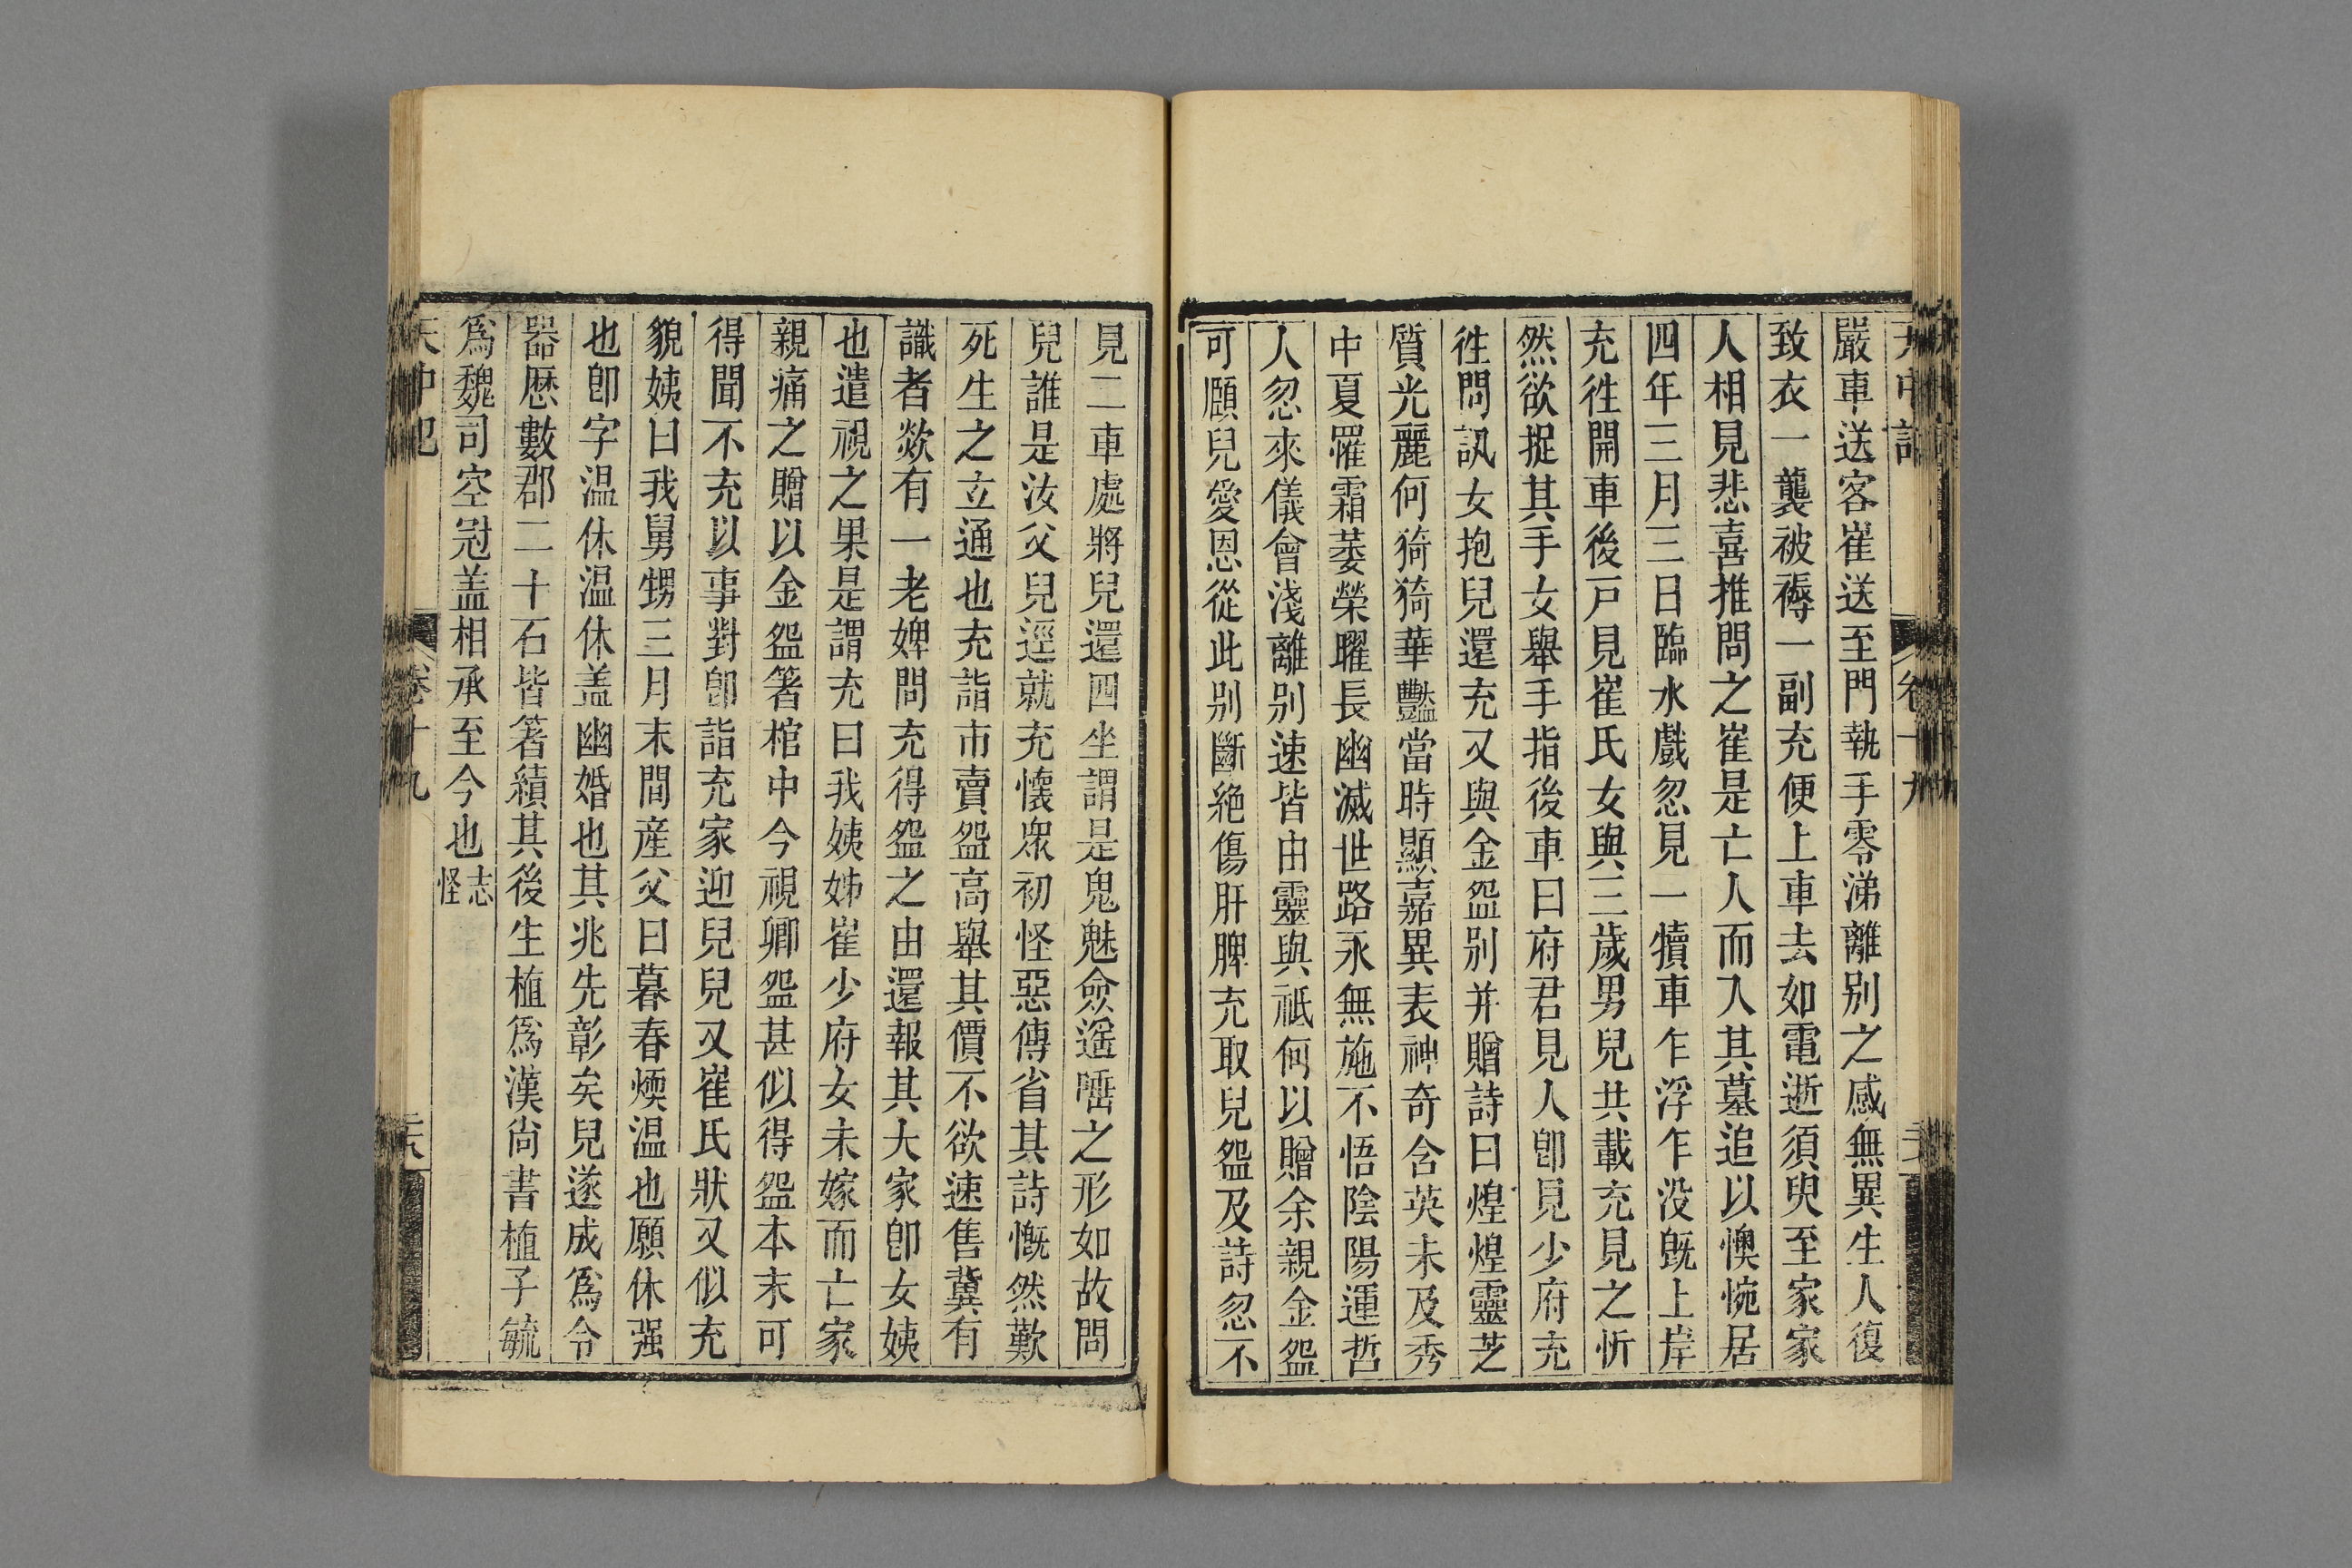 嚴車送客崔送至門執手零涕離别之感無異生人復
致衣一襲被褥一副充便上車去如電逝須臾至家家
人相見悲喜推問之崔是亡人而入其墓追以懊惋居
四年三月三日臨水戲忽見一犢車乍浮乍没旣上岸
充徃開車後戸見崔氏女與三歲男兒共載充見之忻
然欲捉其手女舉手指後車曰府君見人卽見少府充
徃問訊女抱兒還充又與金盌别并贈詩曰煌煌靈芝
質光麗何猗猗華豔當時顯嘉異表神奇含英未及秀
中夏罹霜萎榮曜長幽滅世路永無施不悟陰陽運哲
人忽來儀會淺離别速皆由靈與祇何以贈余親金盌
可頤兒愛恩從此别斷絶傷肝脾充取兒盌及詩忽不
見二車處將兒還四坐謂是鬼魅僉遥唾之形如故問
兒誰是汝父兒逕就充懷衆初怪惡傳省其詩慨然歎
死生之立通也充詣市賣盌高舉其價不欲速售冀有
識者欻有一老婢問充得盌之由還報其大家卽女姨
也遣視之果是謂充曰我姨姊崔少府女未嫁而亡家
親痛之贈以金盌箸棺中今視卿盌甚似得盌本末可
得聞不充以事對卽詣充家迎兒兒又崔氏狀又似充
貌姨曰我舅甥三月末間産父曰暮春煗温也願休强
也卽字温休温休盖幽婚也其兆先彰矣兒遂成爲令
器歴數郡二十石皆箸績其後生植爲漢尚書植子毓
爲魏司空冠盖相承至今也志怪
天中記 卷十九